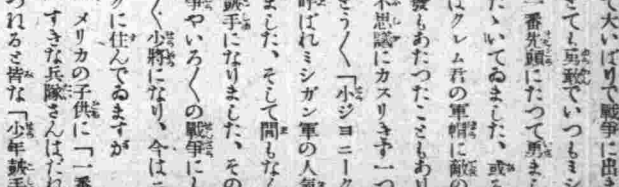 て大いばりで戰爭に出ま
とても勇敢でいつもミシ
一番先頭にたつて勇ま
たゝいてゐました、或る
はクレム君の軍帽に敵の
もあたつたこともあり
不思議にカスリきず一つ
とう〱「小ジヨニーク
呼ばれミシガン軍の人氣
ました、そして間もなく
鼓手になりました、その
爭やいろ〱の戰爭にも
く少將になり、今はこ
に住んでゐますが
メリカの子供に「一番
すきな兵隊さんはだれ
つれると皆な「少年鼓手